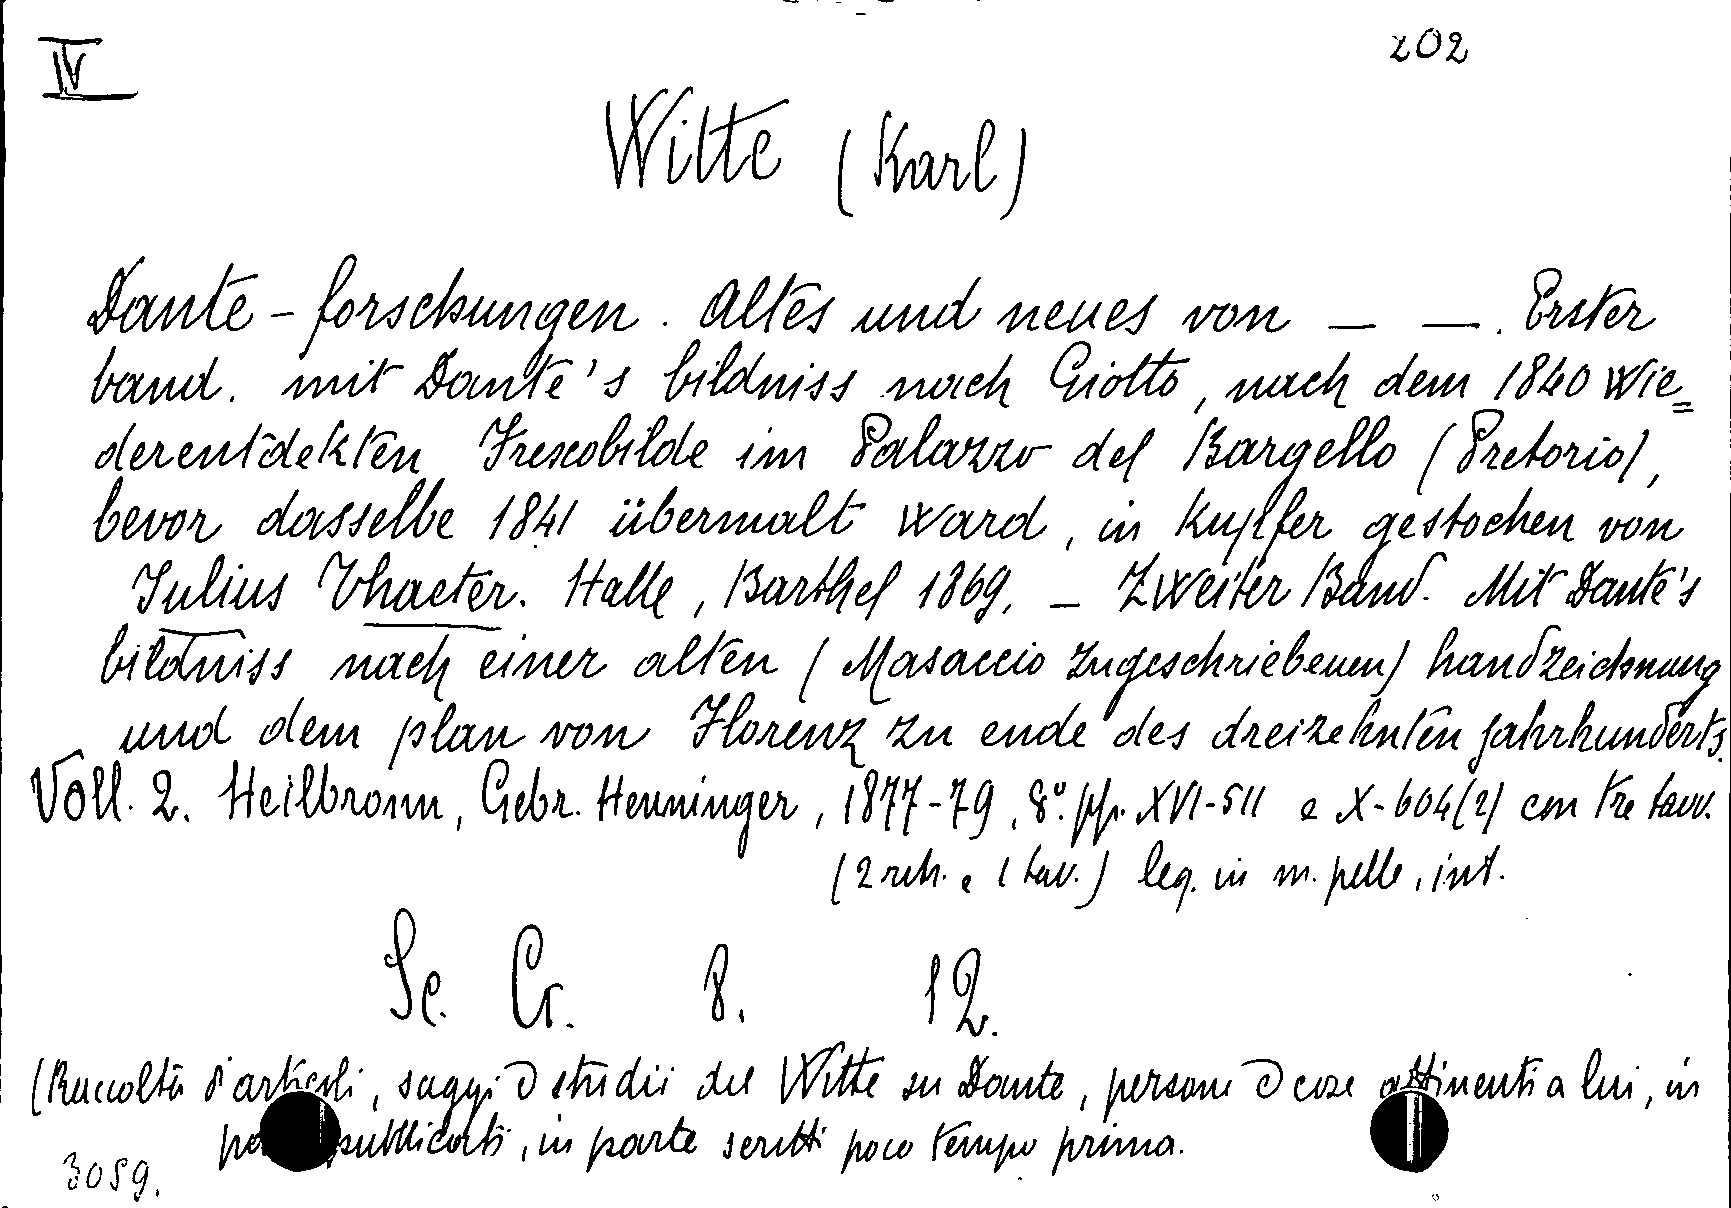 IV
202
Witte (Karl)
Dante-forschungen. Altes und neues von — —. Erster
band. mit Dante's bildniss nach Giotto, nach dem 1840 wie=
derentdekten Frescobilde im Palazzo del Bargello (Pretorio),
bevor dasselbe 1841 übermalt ward, in Kupfer gestochen von
Julius Thaeter. Halle, Barthel 1869. — Zweiter Band. Mit Dante's
bildniss nach einer alten (Masaccio zugeschriebenen) handzeichnung
und dem plan von Florenz zu ende des dreizehnten jahrhunderts.
Voll. 2. Heilbronn, Gebr. Henninger, 1877-79, 8º. pp. XVI-511 e X-604(2) con tre tavv.
(2 rctr. e 1 tav.) leg. in m. pelle, int.
Sc. Cr. 8. 12.
(Raccolta d'articoli, saggi e studii del Witte su Dante, persone e cose attinenti a lui, in
pubblicati, in parte scritti poco tempo prima.
3059.